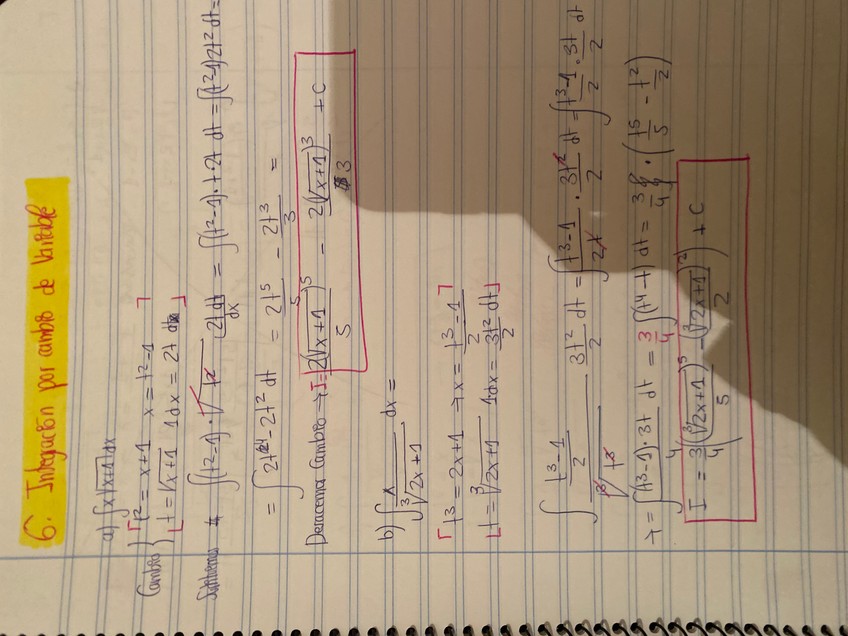 6. Integración por cambio de variable
a) ∫x√x+1 dx
Cambio } t² = x+1 x = t²-1
t = √x+1 1dx = 2t dt
∫(t²-1)·√t² 2t dt = ∫(t²-1)·t·2t dt = ∫(t²-1)2t² dt =
dx
= ∫2t⁴-2t² dt = 2t⁵/5 - 2t³/3 =
Deshacemos cambio → I = 2(√x+1)⁵/5 - 2(√x+1)³/3 + C
b) ∫ x/∛2x+1 dx =
t³ = 2x+1 → x = t³-1/2
t = ∛2x+1 1dx = 3t²/2 dt
∫ (t³-1/2)/∛t³ 3t²/2 dt = ∫ t³-1/2t · 3t²/2 dt = ∫ t³-1/2 · 3t/2 dt
→ = ∫ (t³-1)·3t/4 dt = 3/4 ∫(t⁴-t) dt = 3/4 · (t⁵/5 - t²/2)
I = 3/4 ((∛2x+1)⁵/5 - (∛2x+1)²/2) + C